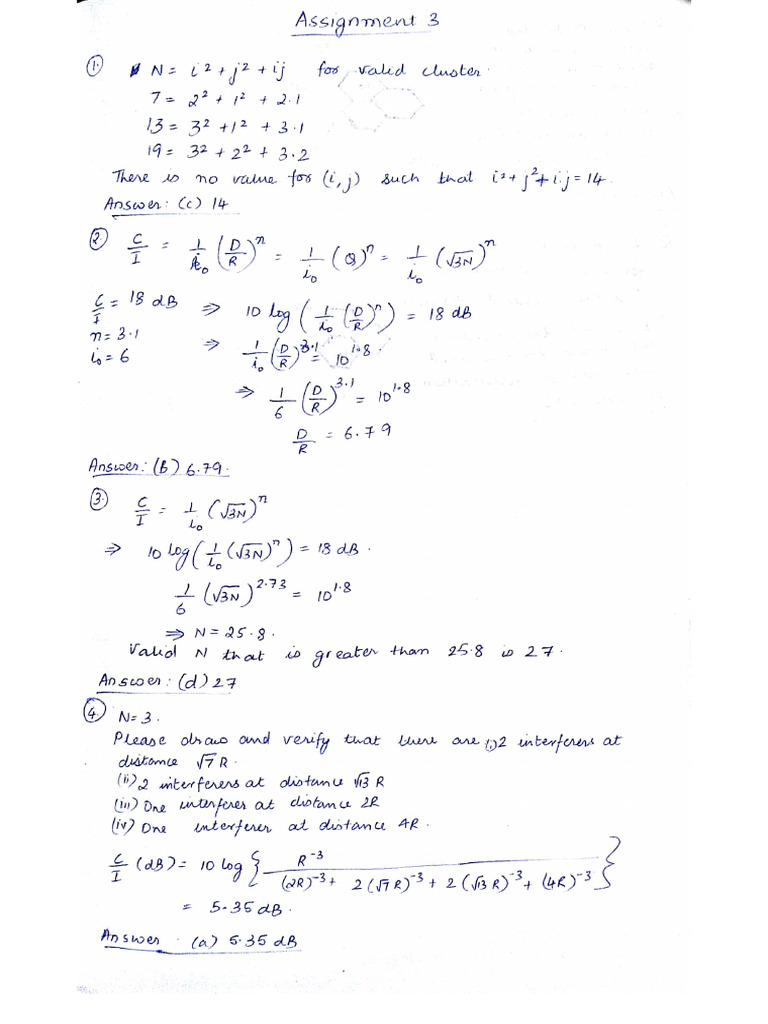 Assignment 3
1. N = i² + j² + ij for valid cluster.
7 = 2² + 1² + 2.1
13 = 3² + 1² + 3.1
19 = 3² + 2² + 3.2
There is no value for (i,j) such that i² + j² + i.j = 14.
Answer: (c) 14
2. C/I = 1/i₀ (D/R)ⁿ = 1/i₀ (Q)ⁿ = 1/i₀ (√3N)ⁿ
C/I = 18 dB ⇒ 10 log(1/i₀ (D/R)ⁿ) = 18 dB
n = 3.1 ⇒ 1/i₀ (D/R)^3.1 = 10^1.8.
i₀ = 6
⇒ 1/6 (D/R)^3.1 = 10^1.8
D/R = 6.79
Answer: (B) 6.79.
3. C/I = 1/i₀ (√3N)ⁿ
⇒ 10 log(1/i₀ (√3N)ⁿ) = 18 dB.
1/6 (√3N)^2.73 = 10^1.8
⇒ N = 25.8.
Valid N that is greater than 25.8 is 27.
Answer: (d) 27
4. N = 3.
Please draw and verify that there are (i) 2 interferers at
distance √7 R.
(ii) 2 interferers at distance √13 R
(iii) One interferer at distance 2R
(iv) One interferer at distance 4R.
C/I (dB) = 10 log { R⁻³ / (2R)⁻³ + 2(√7 R)⁻³ + 2(√13 R)⁻³ + (4R)⁻³ }
= 5.35 dB.
Answer . (a) 5.35 dB